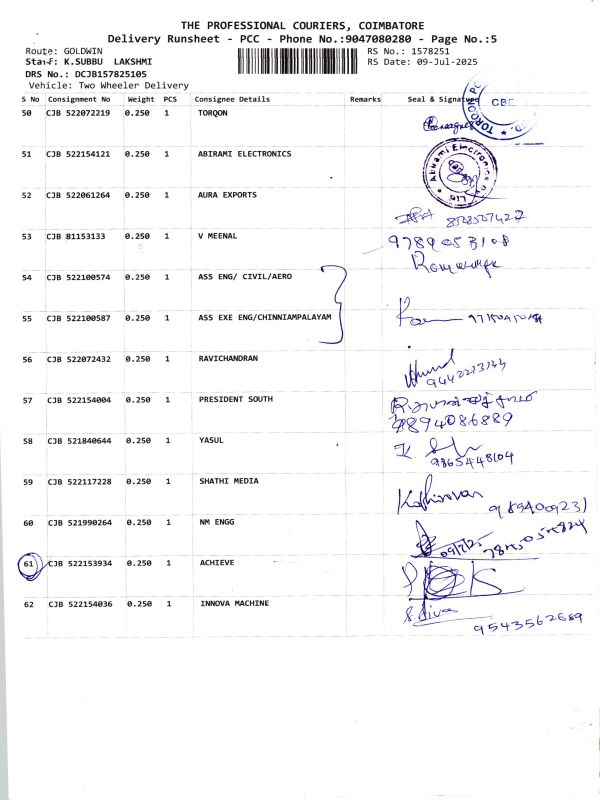 THE PROFESSIONAL COURIERS, COIMBATORE
Delivery Runsheet - PCC - Phone No.:9047080280 - Page No.:5
Route: GOLDWIN RS No.: 1578251
Staff: K.SUBBU LAKSHMI RS Date: 09-Jul-2025
DRS No.: DCJB157825105
Vehicle: Two Wheeler Delivery
S No Consignment No Weight PCS Consignee Details Remarks Seal & Signature
50 CJB 522072219 0.250 1 TORQON
CBE
51 CJB 522154121 0.250 1 ABIRAMI ELECTRONICS
Abirami Electronics
52 CJB 522061264 0.250 1 AURA EXPORTS
53 CJB 81153133 0.250 1 V MEENAL 9789053108
54 CJB 522100574 0.250 1 ASS ENG/ CIVIL/AERO
55 CJB 522100587 0.250 1 ASS EXE ENG/CHINNIAMPALAYAM
56 CJB 522072432 0.250 1 RAVICHANDRAN
9442223144
57 CJB 522154004 0.250 1 PRESIDENT SOUTH
9894086889
58 CJB 521840644 0.250 1 YASUL
9865448104
59 CJB 522117228 0.250 1 SHATHI MEDIA
Kathiravan 989400923)
60 CJB 521990264 0.250 1 NM ENGG
09/7/25
61 CJB 522153934 0.250 1 ACHIEVE
62 CJB 522154036 0.250 1 INNOVA MACHINE
S.Siva
9543562689